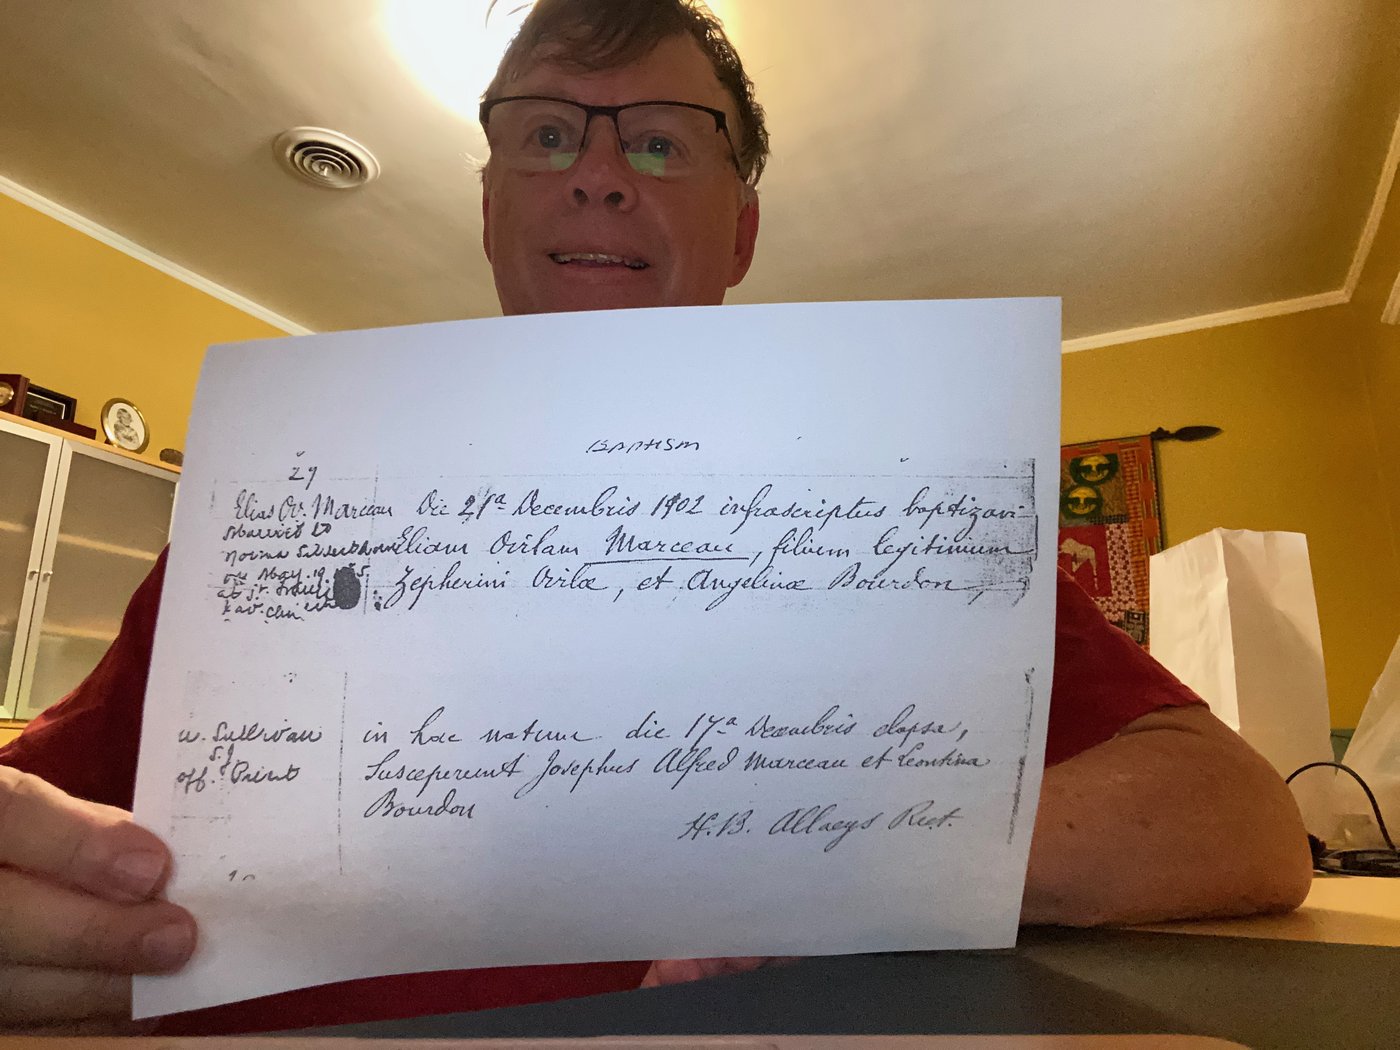 BAPTISM
27
Elias Ov. Marceau
Married to
Norma
on May 19
at St.
Die 21ª Decembris 1902 infrascriptus baptizavi
Eliam Ovilam Marceau, filium legitimum
Zepherini Ovilæ, et Angelinæ Bourdon,
W. Sullivan
S.J
off. Priest
in hac natum die 17ª Decembris elapsa,
Susceperunt Josephus Alfred Marceau et Leontina
Bourdon
H.B. Allaeys Rect.